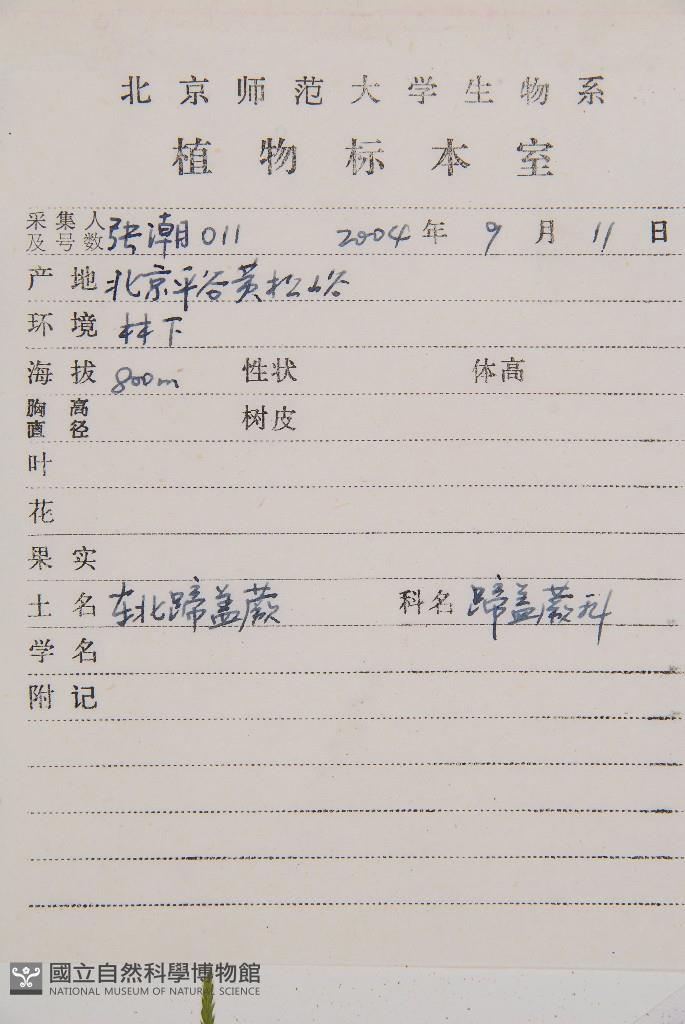 北京师范大学生物系
植物标本室
采集人及号数 张潮 011 2004 年 9 月 11 日
产地 北京平谷黄松峪
环境 林下
海拔 800m 性状 体高
胸高直径 树皮
叶
花
果实
土名 东北蹄盖蕨 科名 蹄盖蕨科
学名
附记
國立自然科學博物館
NATIONAL MUSEUM OF NATURAL SCIENCE